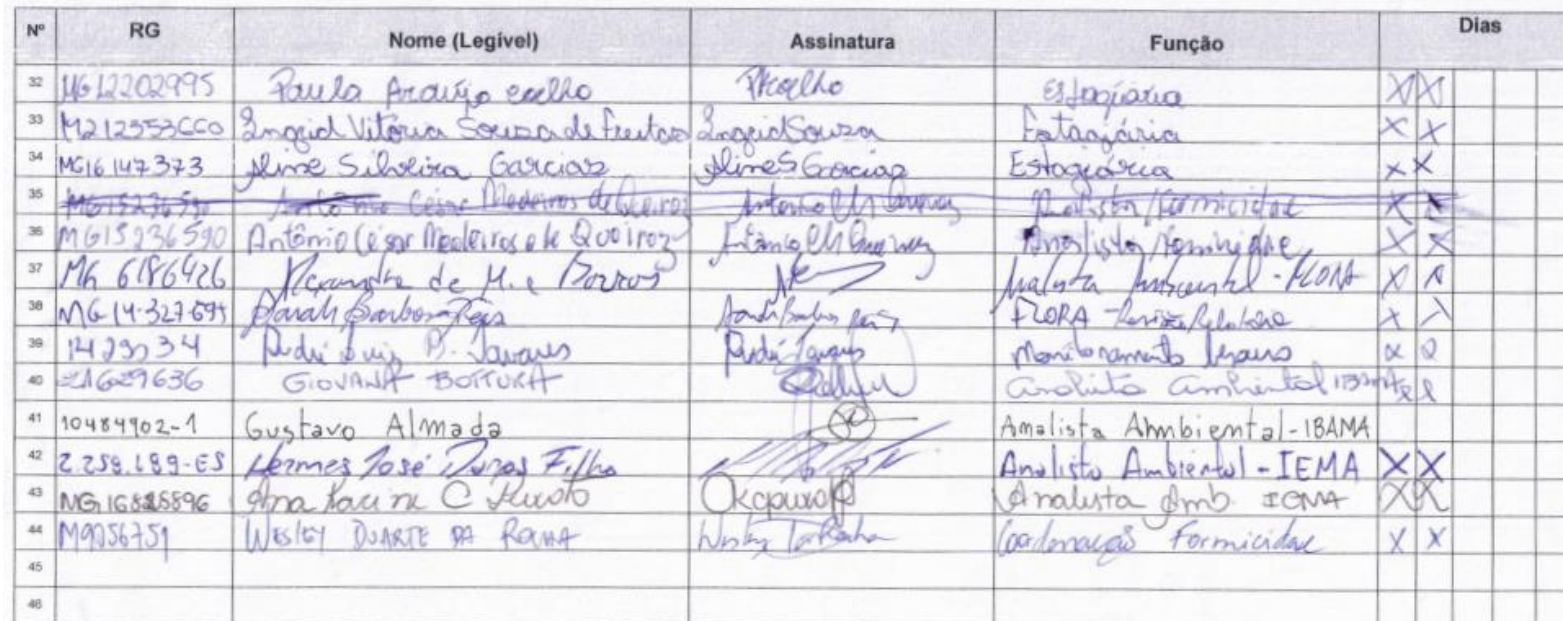 Nº RG Nome (Legível) Assinatura Função Dias
32 MG12202995 Paula Araújo coelho PAcoelho Estagiária X X
33 Ingrid Vitória Souza de Freitas Ingrid Souza Estagiária X X
34 MG16147373 Aline Silveira Garcias Aline S Garcias Estagiária X X
35 MG15236590 Antônio César Medeiros de Queiroz Analista/Formicidae X X
36 MG15236590 Antônio César Medeiros de Queiroz Analista/Formicidae X X
37 MG 6186426 Alexandre de M. e Barros Analista Ambiental - FLORA X X
38 MG-14.327.694 Sarah Barbosa Reis Sarah Barbosa Reis FLORA - X X
39 Rudi Luis Tavares Rudi Tavares Monitoramento
40 GIOVANA BOTTURA analista ambiental IBAMA
41 10484902-1 Gustavo Almada Analista Ambiental-IBAMA
42 2.259.189-ES Hermes José Filho Analista Ambiental - IEMA X X
43 Ana Karina C Analista Amb. IEMA X X
44 M9056751 WESLEY DUARTE DA ROCHA Wesley Coordenação Formicidae X X
45
46